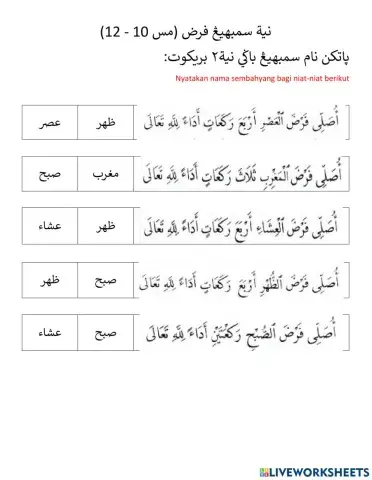 نية سمبهيڠ فرض (مس 10 - 12)
ڽاتاكن نام سمبهيڠ باݢي نية٢ بريكوت:
Nyatakan nama sembahyang bagi niat-niat berikut
أُصَلِّى فَرْضَ ٱلْعَصْرِ أَرْبَعَ رَكَعَاتٍ أَدَاءً لِلّٰهِ تَعَالَى ظهر عصر
أُصَلِّى فَرْضَ ٱلْمَغْرِبِ ثَلَاثَ رَكَعَاتٍ أَدَاءً لِلّٰهِ تَعَالَى مغرب صبح
أُصَلِّى فَرْضَ ٱلْعِشَاءِ أَرْبَعَ رَكَعَاتٍ أَدَاءً لِلّٰهِ تَعَالَى ظهر عشاء
أُصَلِّى فَرْضَ ٱلظُّهْرِ أَرْبَعَ رَكَعَاتٍ أَدَاءً لِلّٰهِ تَعَالَى صبح ظهر
أُصَلِّى فَرْضَ ٱلصُّبْحِ رَكْعَتَيْنِ أَدَاءً لِلّٰهِ تَعَالَى صبح عشاء
LIVEWORKSHEETS